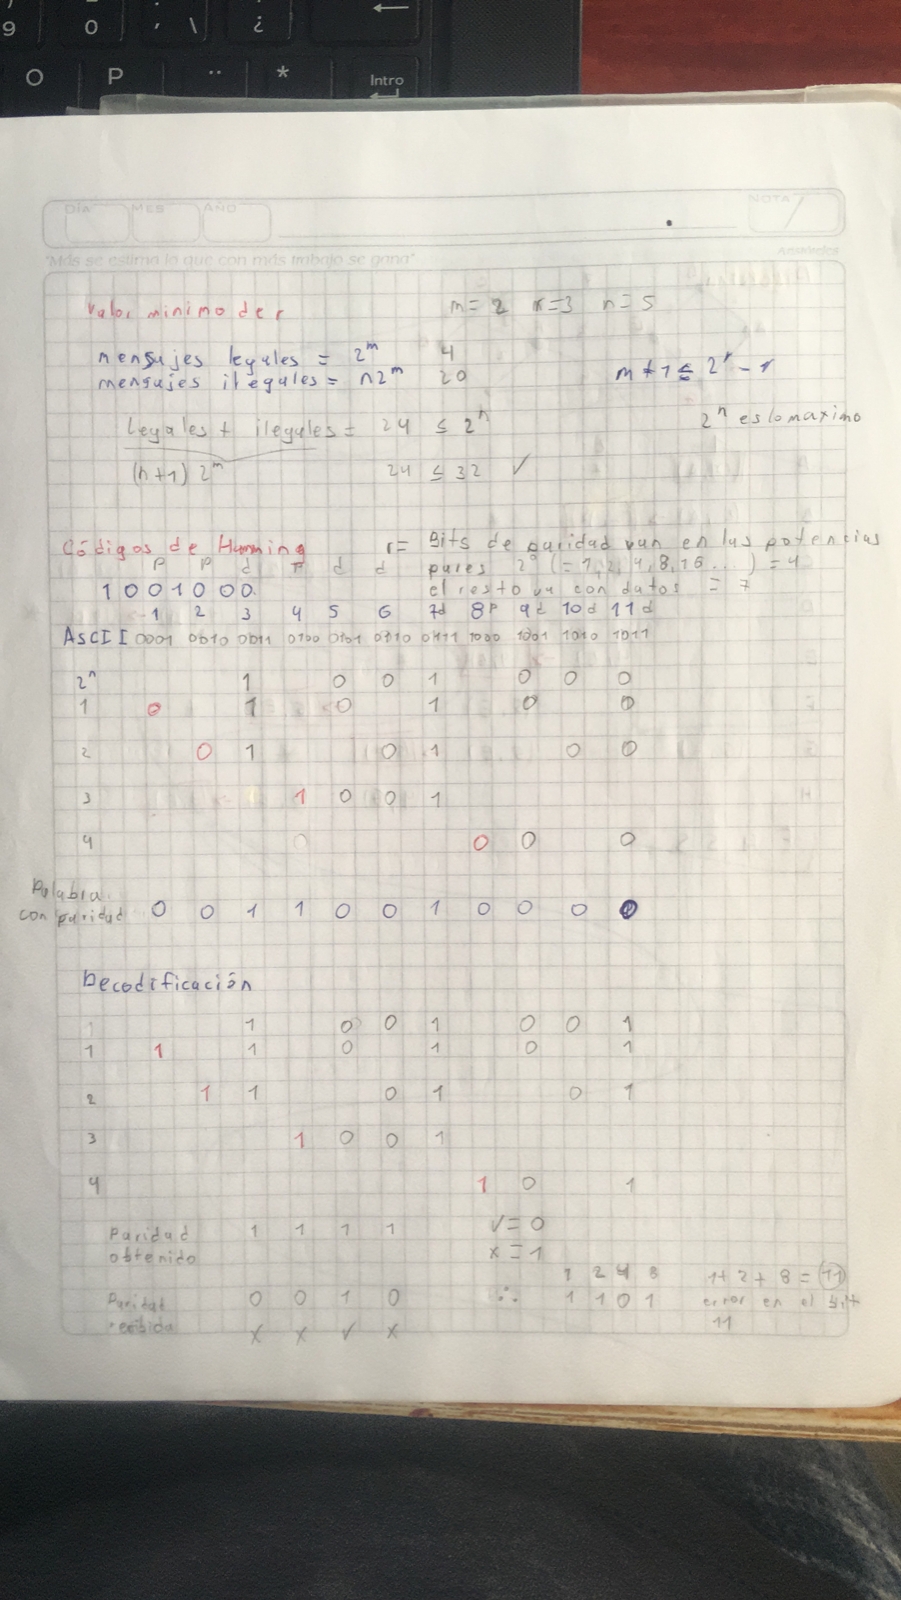 9 0 , \ ¿
O P ¨ * Intro
DÍA MES AÑO NOTA
"Más se estima lo que con más trabajo se gana"
Valor minimo de r m= 2 r=3 n=5
mensajes legales = 2^m 4
mensajes ilegales = n2^m 20 m+1 ≤ 2^r - r
Legales + ilegales = 24 ≤ 2^n 2^n es lo maximo
(n+1) 2^m 24 ≤ 32 ✓
Códigos de Hamming r= Bits de paridad van en las potencias
P P d P d d pares 2^0 (=1,2,4,8,16...) = 4
1001000. el resto va con datos = 7
1 2 3 4 5 6 7d 8P 9d 10d 11d
AscII 0001 0010 0011 0100 0101 0110 0111 1000 1001 1010 1011
2^n 1 0 0 1 0 0 0
1 0 1 0 1 0 0
2 0 1 0 1 0 0
3 1 0 0 1
4 0 0 0
Palabra
con paridad 0 0 1 1 0 0 1 0 0 0 0
Decodificación
1 0 0 1 0 0 1
1 1 1 0 1 0 1
2 1 1 0 1 0 1
3 1 0 0 1
4 1 0 1
Paridad 1 1 1 1 ✓=0
obtenido x=1
1 2 4 8 1+2+8=11
Paridad 0 0 1 0 ∴ 1 1 0 1 error en el bit
recibida x x ✓ x 11